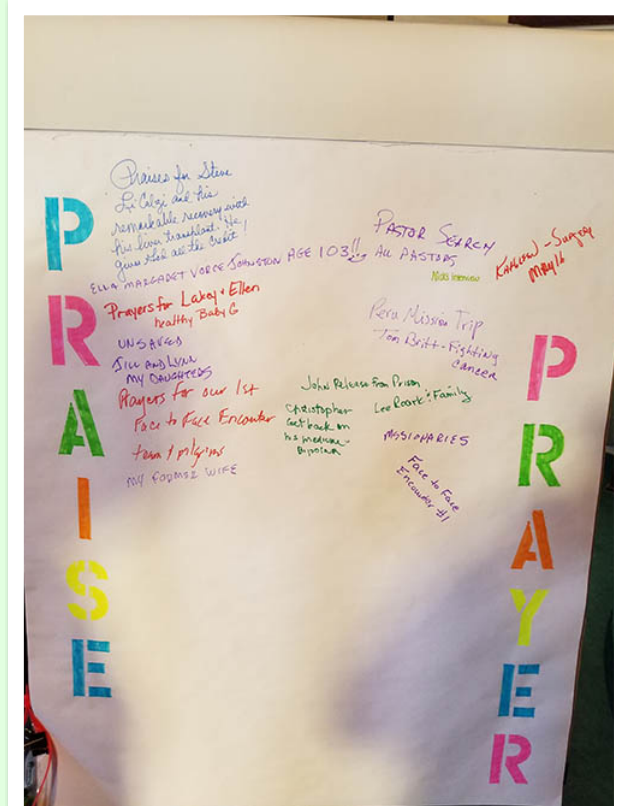 PRAISE
Praises for Steve
Li Calzi and his
remarkable recovery with
his liver transplant. He
gives God all the credit!
ELLA MARGARET VORCE JOHNSTON AGE 103!!
Prayers for Lakey + Ellen
healthy Baby G
UNSAVED
JILL AND LYNN
MY DAUGHTERS
Prayers for our 1st
Face to Face Encounter
team & pilgrims
MY FORMER WIFE
PASTOR SEARCH
ALL PASTORS
KATHLEEN - Surgery
May 16
Peru Mission Trip
Tom Britt - Fighting
cancer
John Release from Prison
Christopher
Get back on
his medicine -
Bipolar
Lee Roark & Family
MISSIONARIES
Face to Face
Encounter #1
PRAYER